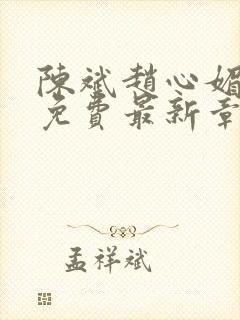 陳斌趙心媚
免費最新章
孟祥斌